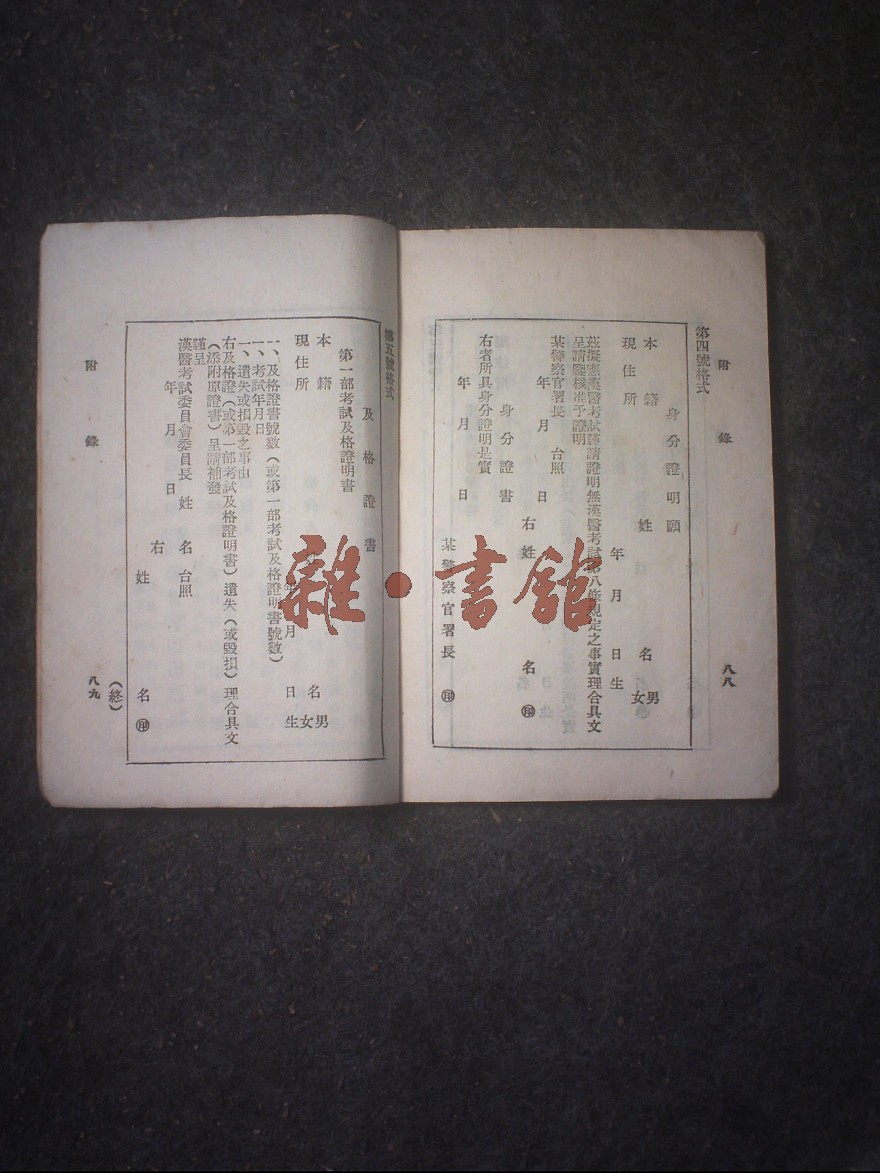 附錄
八八
第四號格式
身分證明願
本籍
現住所
姓名
男女
年月日生
茲擬應漢醫考試謹請證明無漢醫考試第八條規定之事實理合具文
呈請鑒核准予證明
某警察官署長 台照
年月日
右姓名㊞
身分證書
右者所具身分證明是實
年月日
某警察官署長㊞
第五號格式
及格證書
第一部考試及格證明書
本籍
現住所
名
男女
年月日生
一、及格證書號數(或第一部考試及格證明書號數)
一、考試年月日
一、遺失或損毀之事由
右及格證(或第一部考試及格證明書)遺失(或毀損)理合具文
(添附原證書)呈請補發
謹呈
漢醫考試委員會委員長 姓名 台照
年月日
右姓名㊞
(終)
附錄
八九
雜·書館